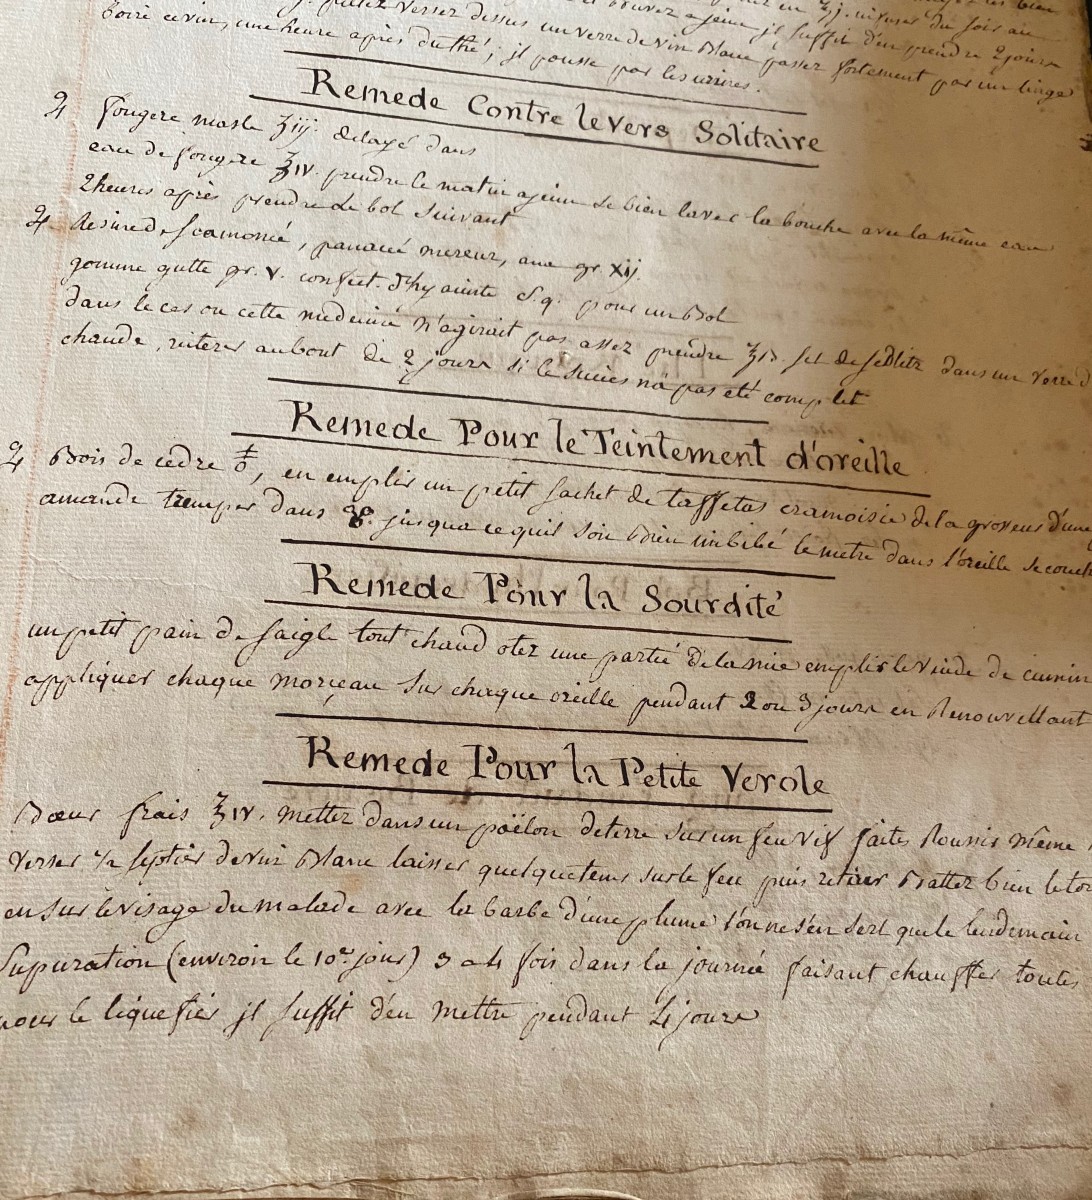 passez versez dessus un verre de vin Blanc passez fortement par un linge
boire ce vin, une heure après du thé, il pousse par les urines.
Remede Contre le vers Solitaire
♃ fougere masle ʒiij. delayé dans
eau de fougere ℥iv. prendre le matin a jeun se bien laver la bouche avec la même eau
2 heures après prendre le bol suivant
♃ Resine de scamonié, panacé mercur, ana gr. xij.
gomme gutte gr. v. confect. d'hyacinte S.q. pour un Bol
dans le cas ou cette medeciné n'agirait pas assez prendre sel de sedlitz dans un verre d
chaude, reiterer au bout de 2 jours si le succes n'a pas eté complet
Remede Pour le Teintement d'oreille
♃ Bois de cedre, en emplir un petit sachet de taffetas cramoisie de la grosseur d'une
amande tremper dans jusqua ce quil soit Bien imbibé le metre dans l'oreille se couch
Remede Pour la Sourdité
un petit pain de saigle tout chaud otez une partié de la mie emplir le vuide de cumin
appliquer chaque morçeau sur chaque oreille pendant 2 ou 3 jours en Renouvellant
Remede Pour la Petite Verole
Bœur frais ℥iv. mettez dans un poëlon de terre sur un feu vif faites Roussir même
verser ½ septier de vin Blanc laisser quelque tems sur le feu puis retirer Battez bien le to
en sur le visage du malade avec la barbe d'une plume l'on ne s'en sert que le lendemain
Supuration (environ le 10e. jour) 3 a 4 fois dans la journé faisant chauffer toutes
pour le liquefier il suffit d'en mettre pendant 4 jours